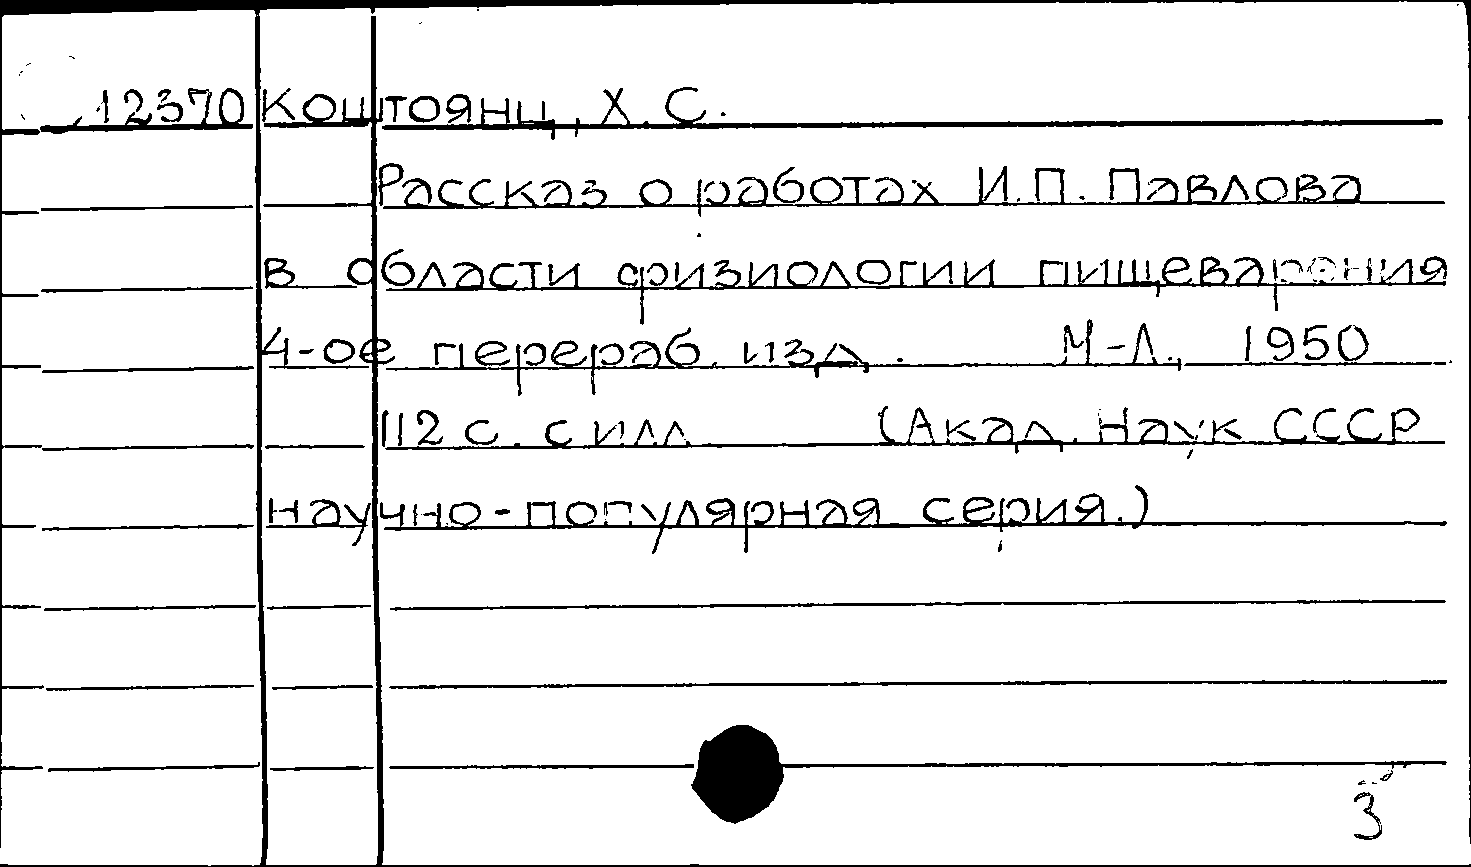 12370 Коштоянц, Х. С.
Рассказ о работах И.П. Павлова
в области физиологии пищеварения
4-ое перераб. изд. М-Л., 1950
112 с. с илл (Акад. Наук СССР
научно-популярная серия.)
3